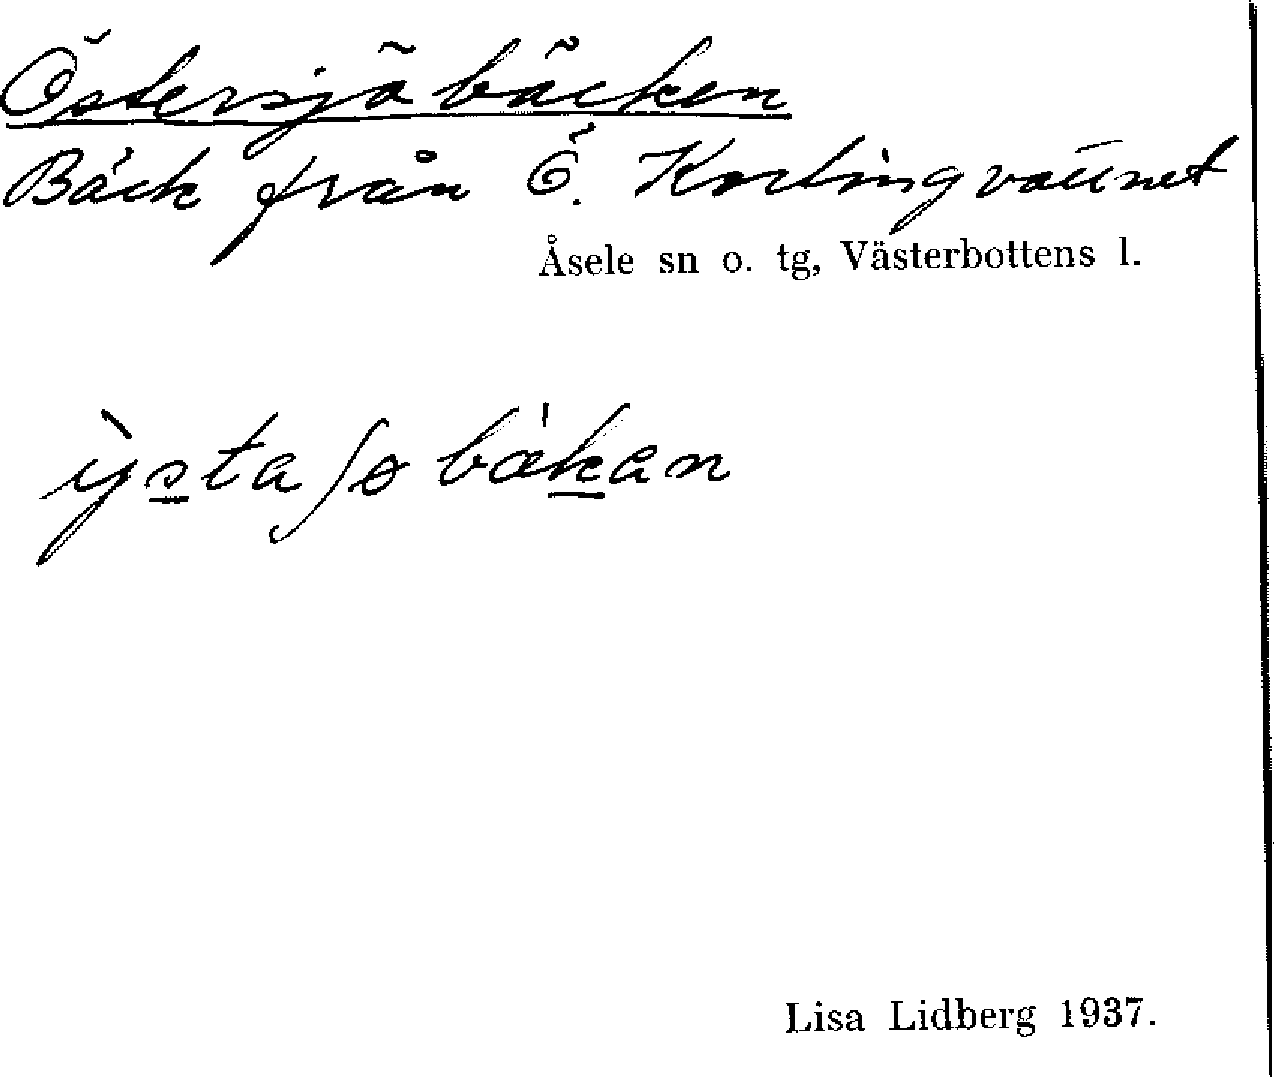 Östersjöbäcken
Bäck från Ö. Kortingvattnet
Åsele sn o. tg, Västerbottens l.
ỳsta ʃø bæ̀kan
Lisa Lidberg 1937.